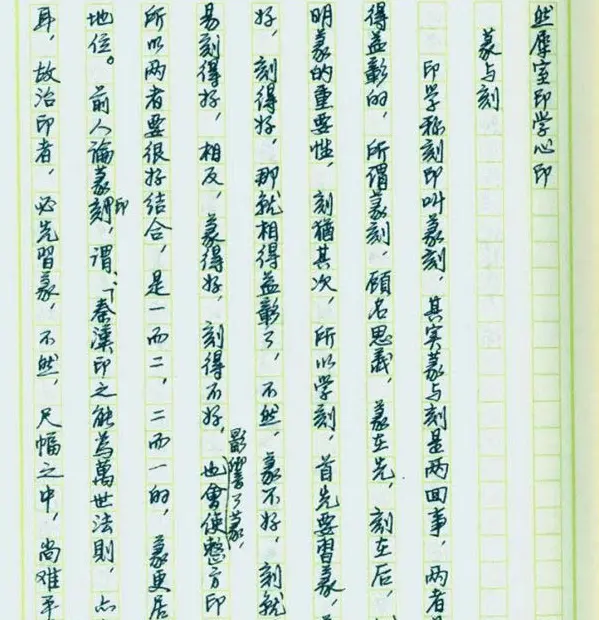 然犀室印学心印
篆与刻
印学称刻印叫篆刻,其实篆与刻是两回事,两者
得益彰的,所谓篆刻,顾名思義,篆在先,刻在后,
明篆的重要性,刻犹其次,所以学刻,首先要習篆,
好,刻得好,那就相得益彰了,不然,篆不好,刻就
易刻得好,相反,篆得好,刻得不好,影响了篆,也會使整方印
所以两者要很好结合,是一而二,二而一的,篆更居
地位。前人論篆刻印,謂:「秦漢印之能為萬世法則,
耳,故治印者,必先習篆,不然,尺幅之中,尚难平